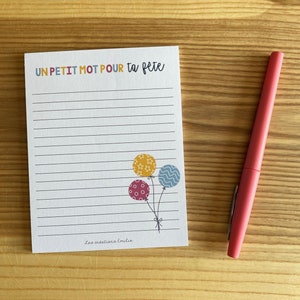 UN PETIT MOT POUR ta fête
Les créations Emilie